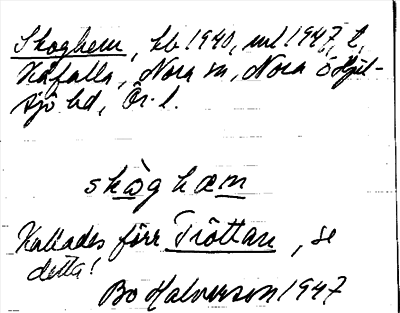 Skoghem, kb 1940, uel 1947, l,
Kåfalla, Nora sn, Nora o Hjul-
sjö bd, Ör. l.
skòg hæm
Kallades förr Tröttan, se
detta!
Bo Halvarson 1947